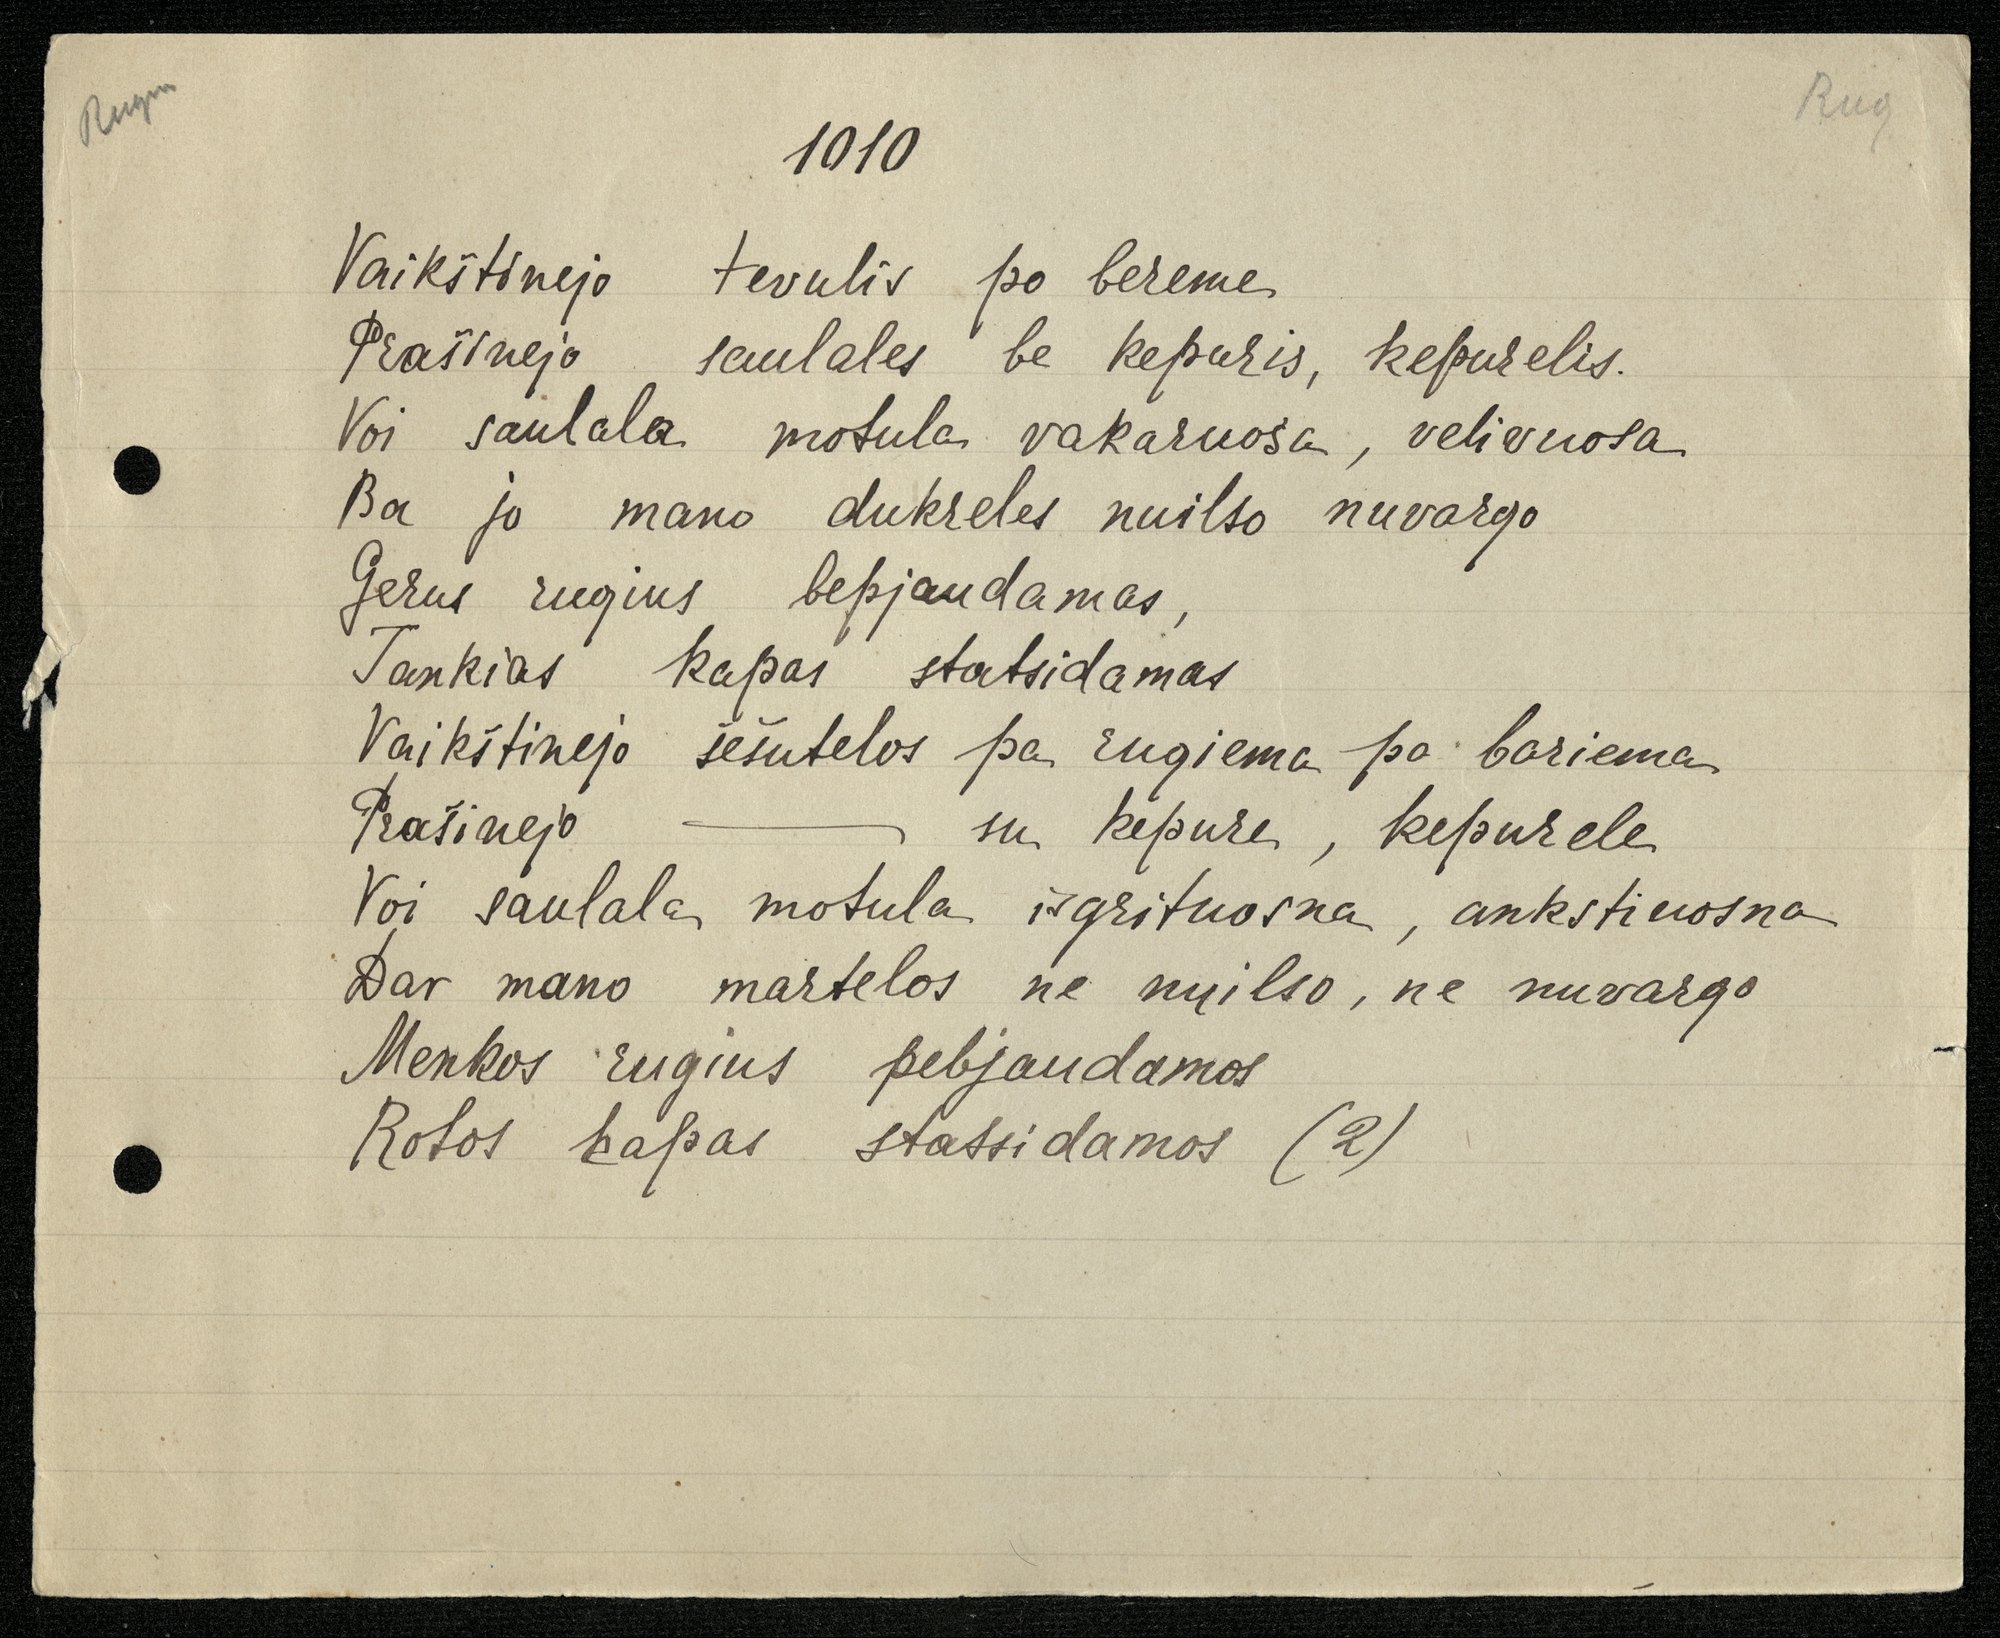 Rug
1010
Vaikštinejo tevulis po bereme
Prašinejo saulales be kepuris, kepurelis.
Voi saulala motula vakaruosa, velivuosa
Ba jo mano dukreles nuilso nuvargo
Gerus rugius bepjaudamas,
Tankias kapas statsidamas
Vaikštinejo šešutelos pa rugiema po bariema
Prašinejo —— su kepure, kepurele
Voi saulala motula išgrituosna, ankstiuosna
Dar mano martelos ne nuilso, ne nuvargo
Menkos rugius pebjaudamos
Rotos kapas statsidamos (2)